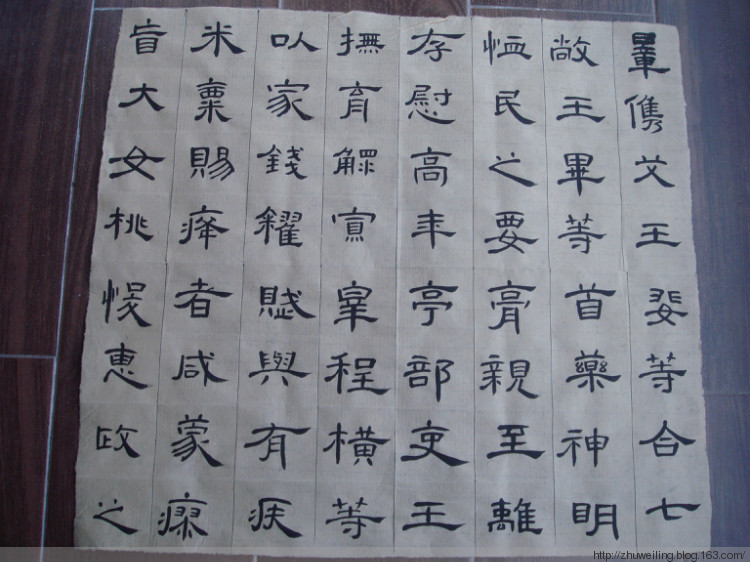 量儁艾王婓等合七
敞王畢等首藥神明
恤民之要膏親至離
存慰高年亭部吏王
撫育鰥寡宰程橫等
以家錢糴賦與有疾
米粟賜癃者咸蒙瘳
盲大女桃悛惠政之
http://zhuweiling.blog.163.com/